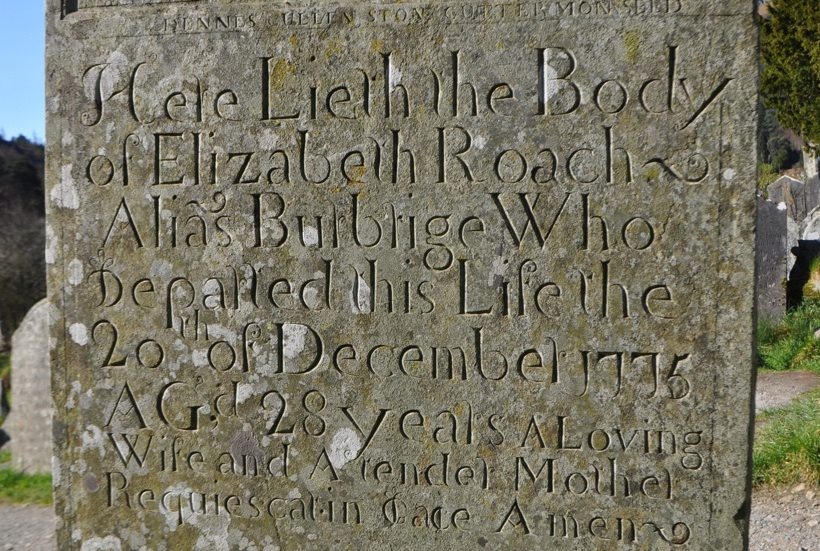 DENNES CULLEN STON CUTTER MONSEED
Here Lieth the Body
of Elizabeth Roach
Alias Burbrige Who
Departed this Life the
20th of December 1775
AG,d 28 years A Loving
Wife and A tender Mother
Requiescat in Pace Amen